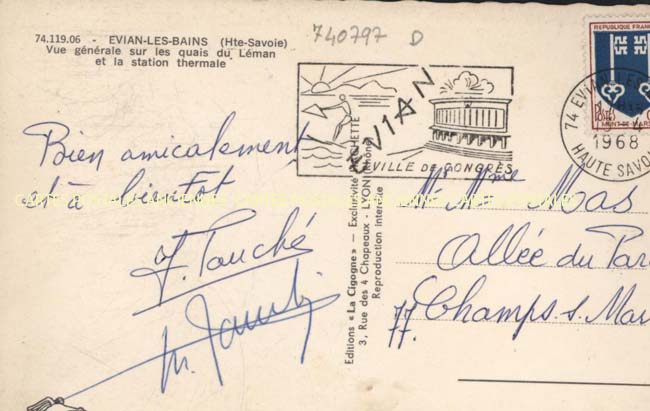 740797 D
74.119.06 - EVIAN-LES-BAINS (Hte-Savoie)
Vue générale sur les quais du Léman
et la station thermale
Bien amicalement
et à bientôt
F. Touché
EVIAN
VILLE DE CONGRÈS
REPUBLIQUE FRANC
MONT-DE-MARS
74 EVIAN LES
1968
HAUTE SAVOI
Editions « La Cigogne » — Exclusivité HACHETTE
3, Rue des 4 Chapeaux - LYON (Rhône)
Reproduction interdite
Mr Mme Mas
Allée du Par
77 Champs s. Mar
77.